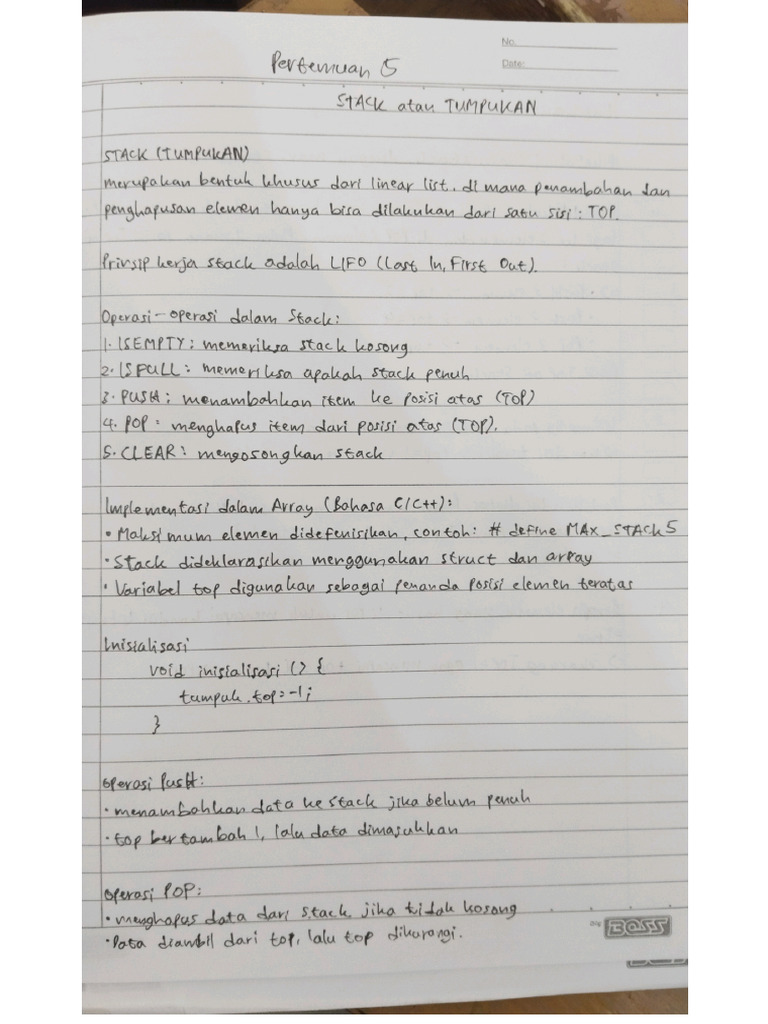 No.
Date:
Pertemuan 5
STACK atau TUMPUKAN
STACK (TUMPUKAN)
merupakan bentuk khusus dari linear list. di mana penambahan dan
penghapusan elemen hanya bisa dilakukan dari satu sisi : TOP.
Prinsip kerja stack adalah LIFO (Last In, First Out).
Operasi-operasi dalam Stack:
1. ISEMPTY : memeriksa stack kosong
2. ISFULL : memeriksa apakah stack penuh
3. PUSH : menambahkan item ke posisi atas (TOP)
4. POP : menghapus item dari posisi atas (TOP).
5. CLEAR : mengosongkan stack
Implementasi dalam Array (Bahasa C/C++):
• Maksimum elemen didefenisikan, contoh: # define MAX_STACK 5
• Stack dideklarasikan menggunakan struct dan array
• Variabel top digunakan sebagai penanda posisi elemen teratas
Inisialisasi
void inisialisasi () {
tumpuk.top=-1;
}
Operasi PusH:
• menambahkan data ke stack jika belum penuh
• top bertambah 1, lalu data dimasukkan
Operasi POP:
• menghapus data dari stack jika tidak kosong
• Data diambil dari top, lalu top dikurangi.
BOSS